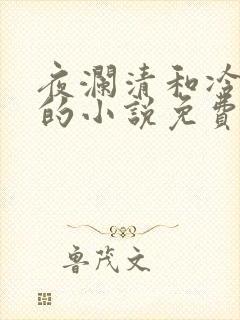 夜瀾清和冷
的小說免費
魯茂文